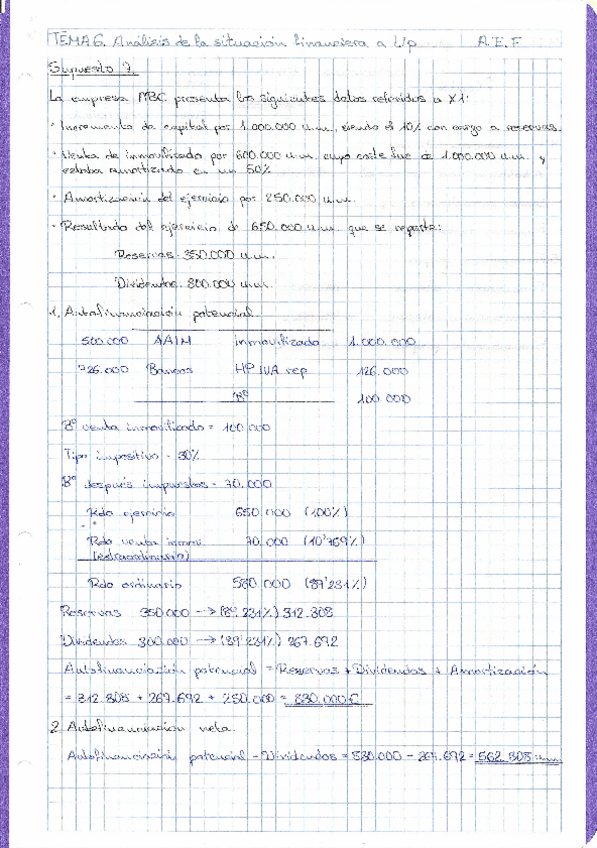 TEMA 6. Análisis de la situación financiera a L/p A.E.F
Supuesto 7.
La empresa MBC presenta los siguientes datos referidos a X1:
· Incremento de capital por 1.000.000 u.m., siendo el 10% con cargo a reservas.
· Venta de inmovilizado por 600.000 u.m. cuyo coste fue de 1.000.000 u.m. y
estaba amortizado en un 50%
· Amortización del ejercicio por 250.000 u.m.
· Resultado del ejercicio de 650.000 u.m. que se reparte:
Reservas: 350.000 u.m.
Dividendos: 300.000 u.m.
1. Autofinanciación potencial.
500.000 AAIM inmovilizado 1.000.000
726.000 Bancos HP IVA rep. 126.000
Bº 100.000
Bº venta inmovilizado = 100.000
Tipo impositivo = 30%
Bº después impuestos = 70.000
Rdo ejercicio 650.000 (100%)
Rdo venta inmov. 70.000 (10'769%)
(extraordinario)
Rdo ordinario 580.000 (89'231%)
Reservas 350.000 → (89'231%) 312.308
Dividendos 300.000 → (89'231%) 267.692
Autofinanciación potencial = Reservas + Dividendos + Amortización
= 312.308 + 267.692 + 250.000 = 830.000 €
2. Autofinanciación neta.
Autofinanciación potencial - Dividendos = 830.000 - 267.692 = 562.308 u.m.